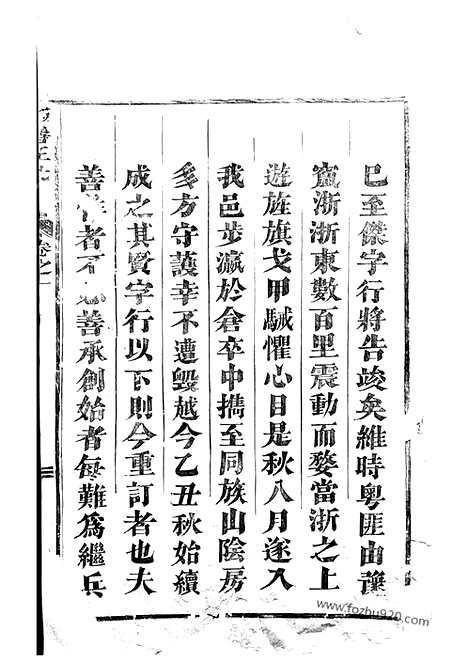 已至傑字行將告竣矣維時粵匪由豫
竄浙浙東數百里震動而婺當浙之上
遊旌旗戈甲駴懼心目是秋八月遂入
我邑步瀛於倉卒中攜至同族山陰房
多方守護幸不遭毀越今乙丑秋始續
成之其賢字行以下則今重訂者也夫
善作者不善承創始者每難爲繼兵
卷之一
www.fozhu920.com